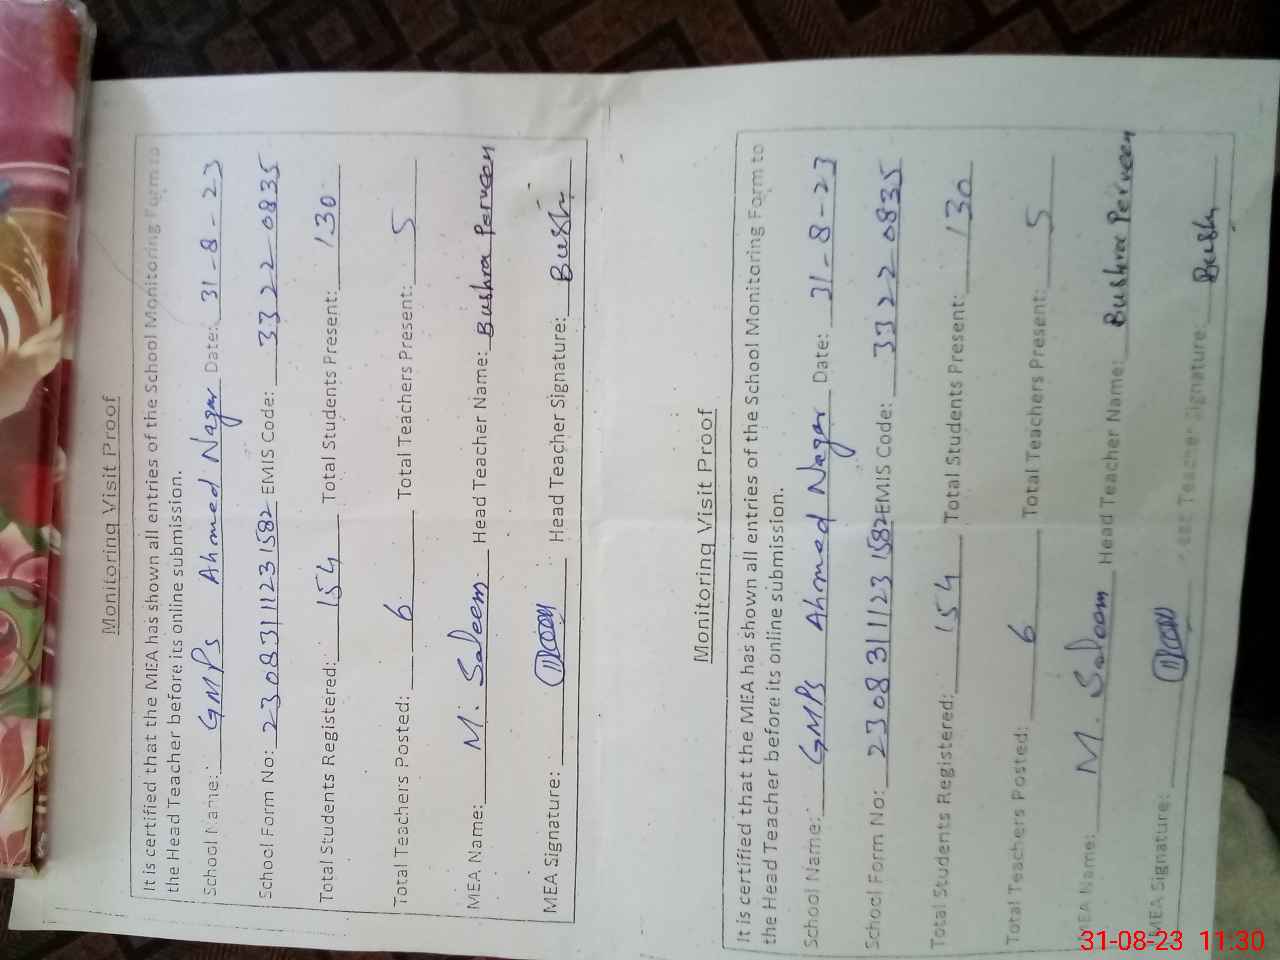 Monitoring Visit Proof
It is certified that the MEA has shown all entries of the School Monitoring Form to
the Head Teacher before its online submission.
School Name: GMPS Ahmed Nagar Date: 31-8-23
School Form No: 23083111231582 EMIS Code: 33220835
Total Students Registered: 154 Total Students Present: 130
Total Teachers Posted: 6 Total Teachers Present: 5
MEA Name: M. Saleem Head Teacher Name: Bushra Perveen
MEA Signature: Head Teacher Signature: Bush
Monitoring Visit Proof
It is certified that the MEA has shown all entries of the School Monitoring Form to
the Head Teacher before its online submission.
School Name: GMPS Ahmed Nagar Date: 31-8-23
School Form No: 23083111231582 EMIS Code: 33220835
Total Students Registered: 154 Total Students Present: 130
Total Teachers Posted: 6 Total Teachers Present: 5
MEA Name: M. Saleem Head Teacher Name: Bushra Perveen
MEA Signature: Teacher Signature: Bush
31-08-23 11:30